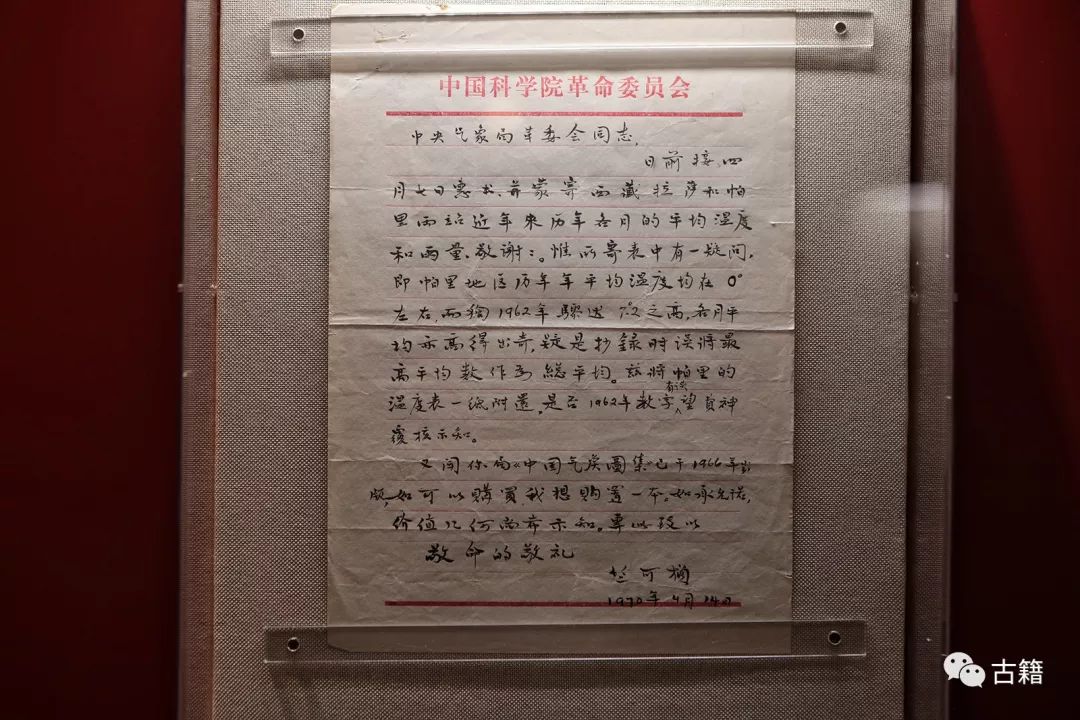 中国科学院革命委员会
中央气象局革委会同志,
日前接四
月七日惠书、并蒙寄西藏拉萨和帕
里两站近年来历年各月的平均温度
和雨量、敬谢:。惟所寄表中有一疑问,
即帕里地区历年年平均温度均在0°
左右,而独1962年骤达7°.2之高,各月平
均亦高得出奇,疑是抄録时误将最
高平均数作为總平均。兹将帕里的
温度表一纸附還,是否1962年数字有误望費神
覆核示知。
又闻你局《中国气候圖集》已于1966年出
版,如可以購買,我想购置一本。如承允诺,
价值几何尚希示知。專以致以
敬命的敬礼
竺可楨
1970年4月14日
古籍